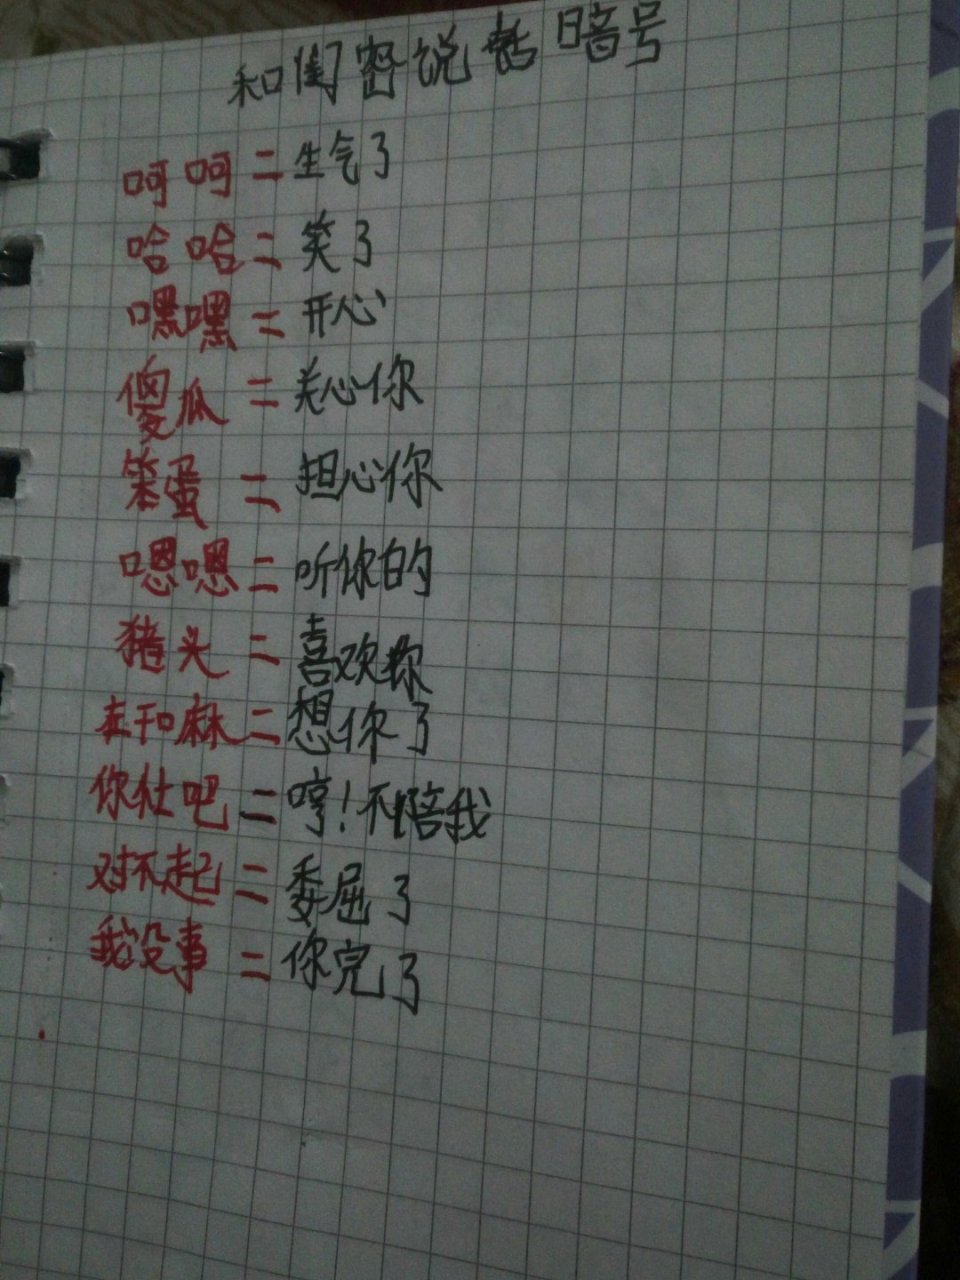 和闺密说话暗号
呵呵=生气了
哈哈=笑了
嘿嘿=开心
傻瓜=关心你
笨蛋=担心你
嗯嗯=听你的
猪头=喜欢你
在干麻=想你了
你忙吧=哼!不陪我
对不起=委屈了
我没事=你完了